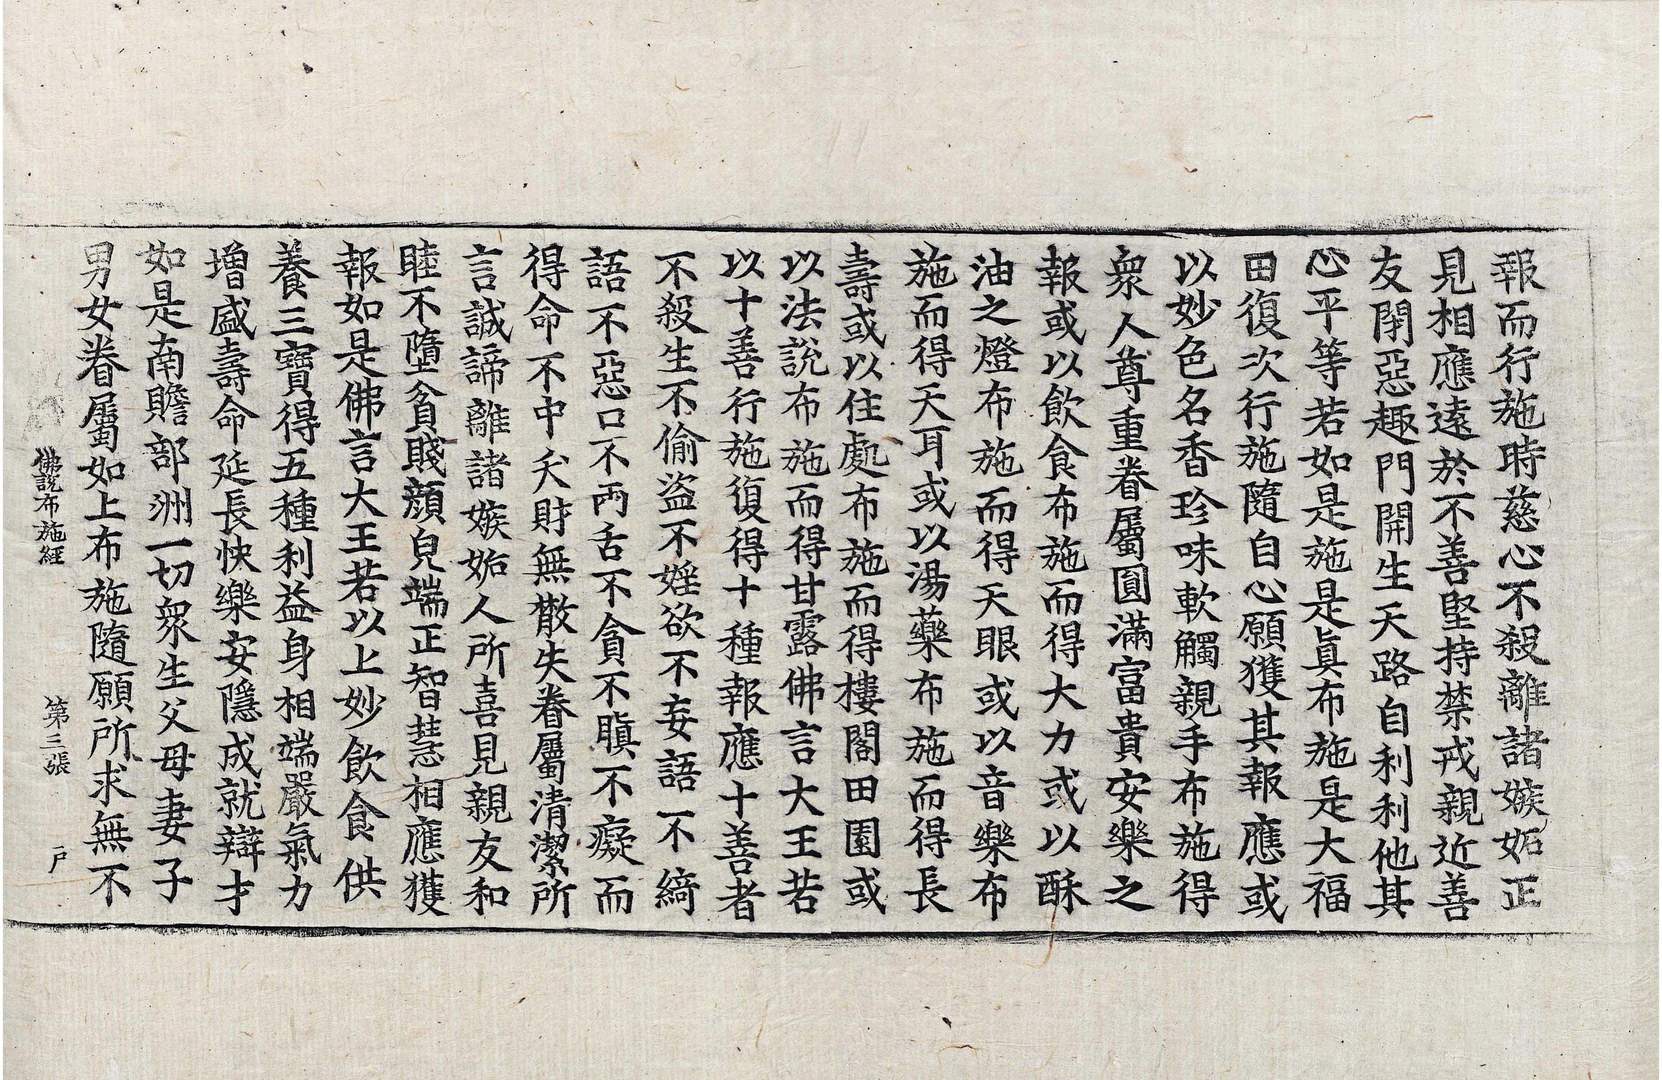 報而行施時慈心不殺離諸嫉妬正
見相應遠於不善堅持禁戒親近善
友閇惡趣門開生天路自利利他其
心平等若如是施是眞布施是大福
田復次行施隨自心願獲其報應或
以妙色名香珍味軟觸親手布施得
衆人尊重眷屬圓滿富貴安樂之
報或以飲食布施而得大力或以酥
油之燈布施而得天眼或以音樂布
施而得天耳或以湯藥布施而得長
壽或以住處布施而得樓閣田園或
以法説布施而得甘露佛言大王若
以十善行施復得十種報應十善者
不殺生不偷盜不婬欲不妄語不綺
語不惡口不兩舌不貪不瞋不癡而
得命不中夭財無散失眷屬清潔所
言誠諦離諸嫉妬人所喜見親友和
睦不墮貧賤顏皃端正智慧相應獲
報如是佛言大王若以上妙飲食供
養三寶得五種利益身相端嚴氣力
增盛壽命延長快樂安隱成就辯才
如是南贍部洲一切衆生父母妻子
男女眷屬如上布施隨願所求無不
佛説布施經　第三張　戸